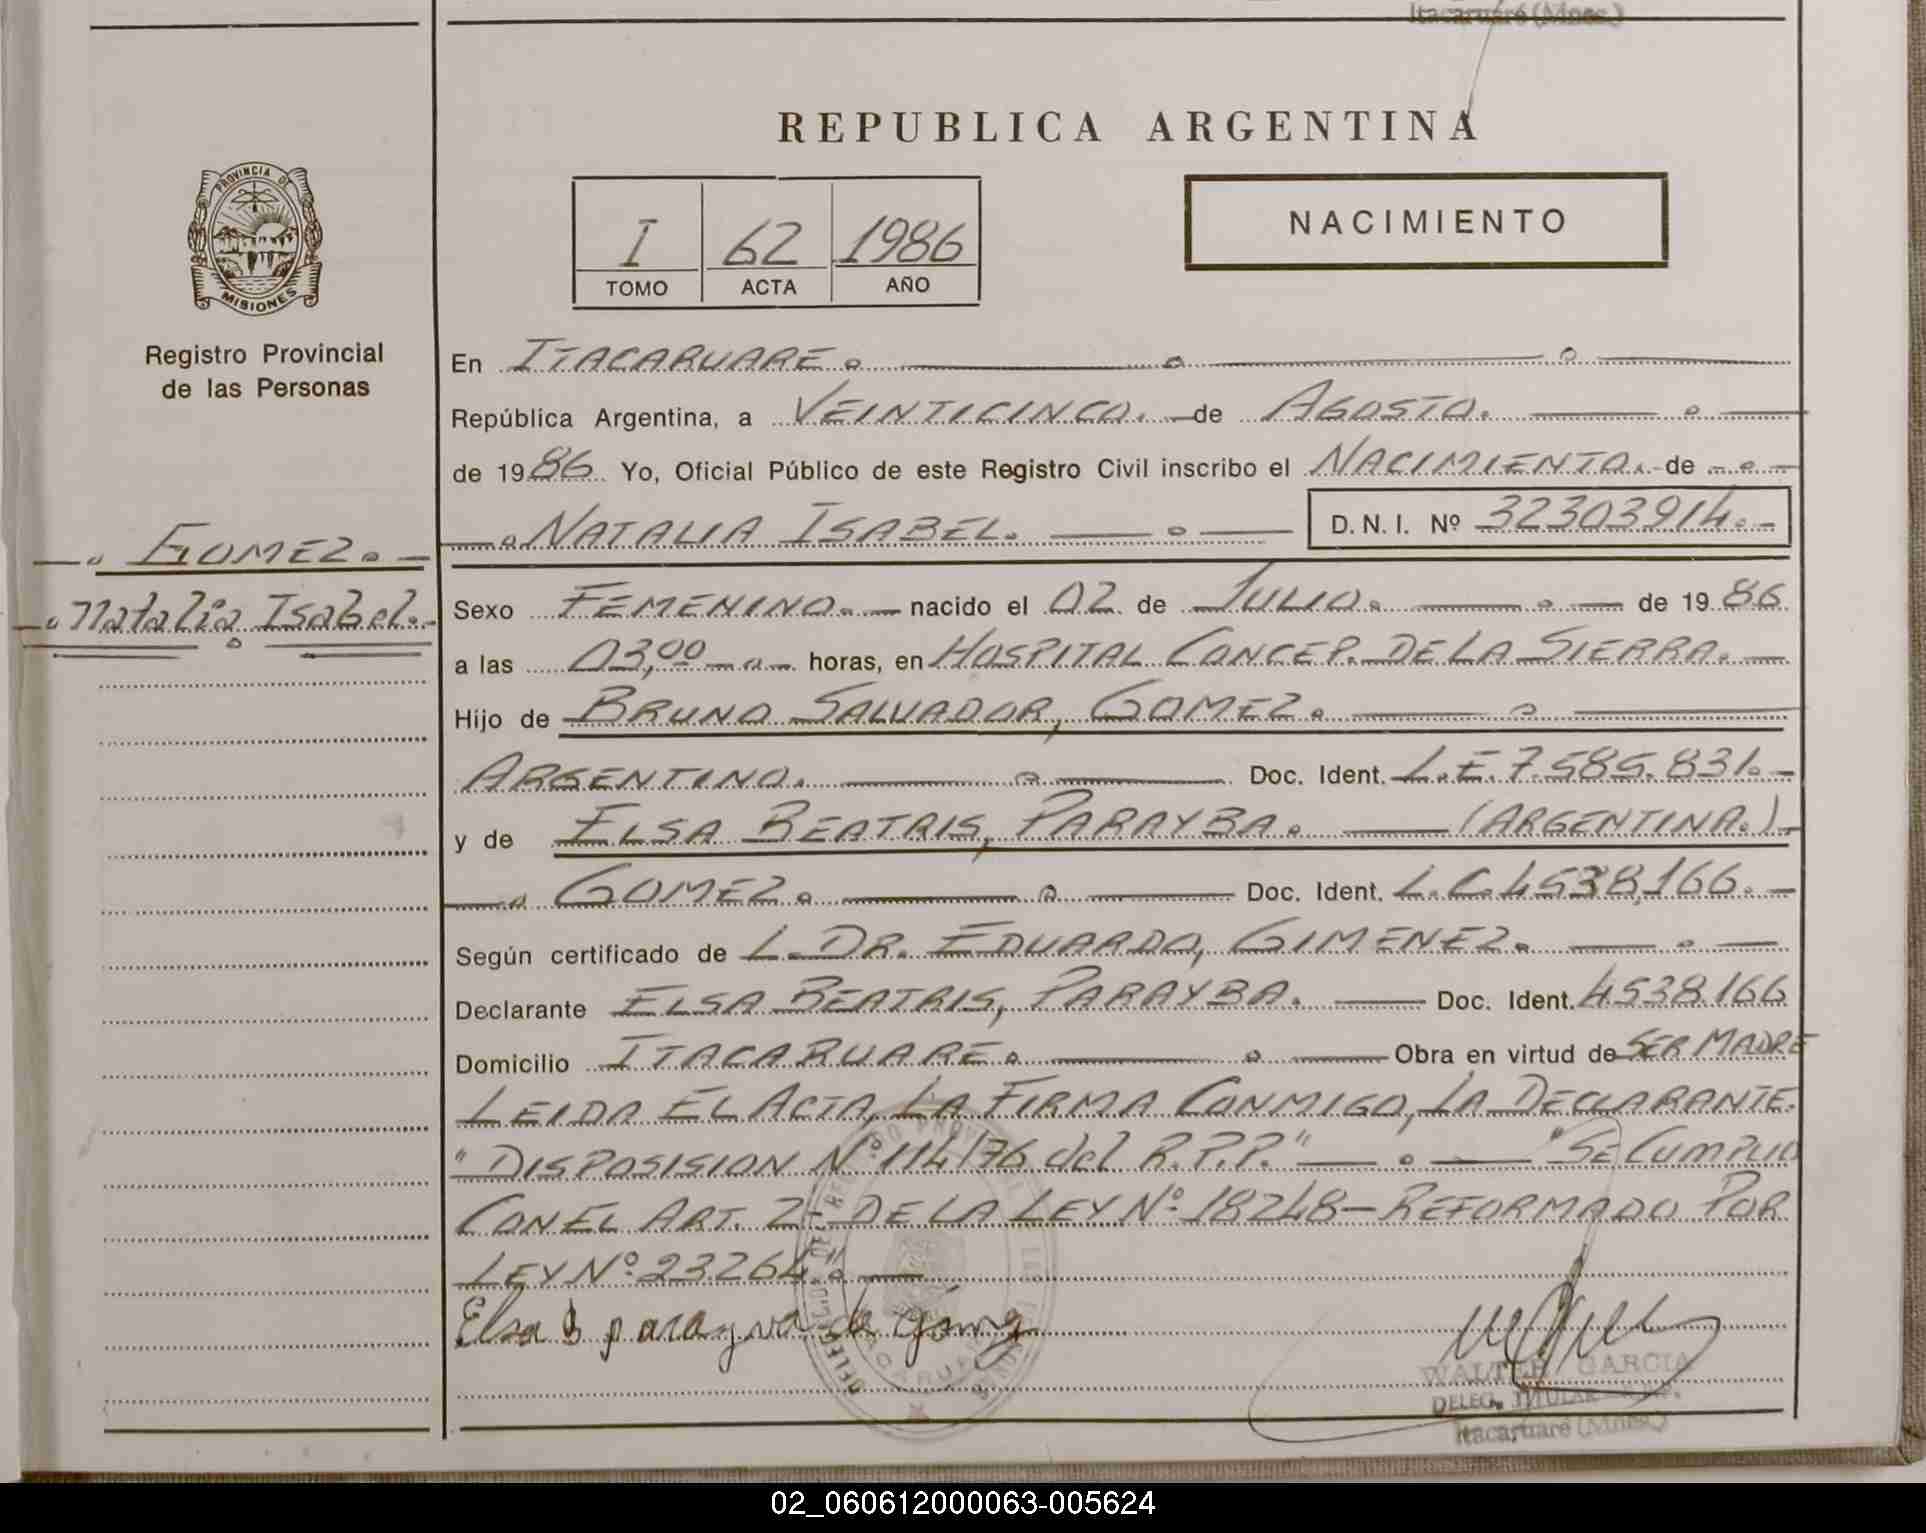 Itacaruaré (Mnes.)
REPUBLICA ARGENTINA
PROVINCIA DE
MISIONES
Registro Provincial
de las Personas
I 62 1986
TOMO ACTA AÑO
NACIMIENTO
GOMEZ.
Natalia Isabel.
En ITACARUARE.
República Argentina, a VEINTICINCO. de AGOSTO.
de 1986 Yo, Oficial Público de este Registro Civil inscribo el NACIMIENTO. de
NATALIA ISABEL. D.N.I. Nº 32303914.
Sexo FEMENINO. nacido el 02 de JULIO. de 1986
a las 03,00 horas, en HOSPITAL CONCEP. DE LA SIERRA.
Hijo de BRUNO SALVADOR, GOMEZ.
ARGENTINO. Doc. Ident. L.E. 7.585.831.
y de ELSA BEATRIS, PARAYBA. (ARGENTINA.)
GOMEZ. Doc. Ident. L.C. 4538,166.
Según certificado de L. DR. EDUARDO, GIMENEZ.
Declarante ELSA BEATRIS, PARAYBA. Doc. Ident. 4538.166
Domicilio ITACARUARE. Obra en virtud de SER MADRE
LEIDA EL ACTA, LA FIRMA CONMIGO, LA DECLARANTE.
"DISPOSISION Nº 114/76 del R.P.P." "SE CUMPLIO
CON EL ART. 2- DE LA LEY Nº 18248-REFORMADO POR
LEY Nº 23264".
Elsa B parayva de Gomez
WALTER GARCIA
DELEG. TITULAR
Itacaruaré (Mnes.)
02_060612000063-005624